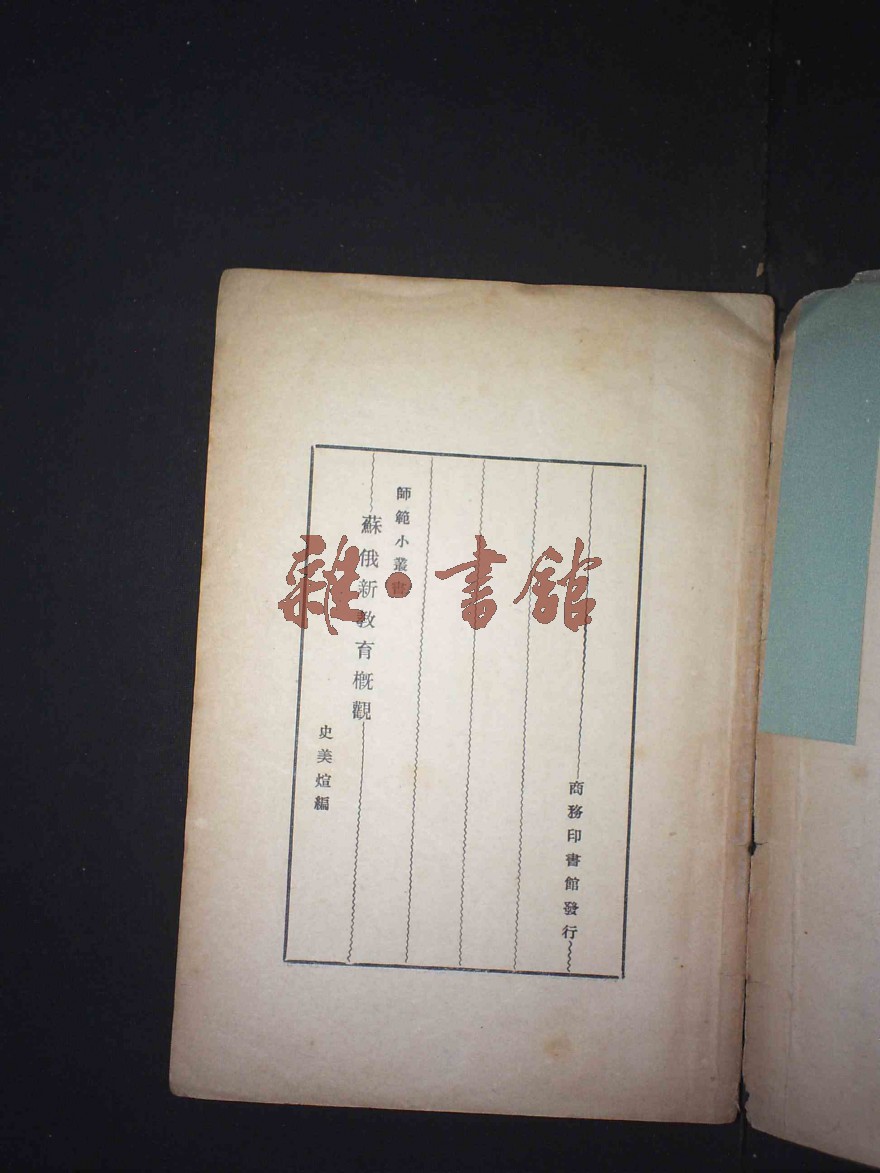 師範小叢書
蘇俄新教育概觀
史美煊編
商務印書館發行
雜·書館